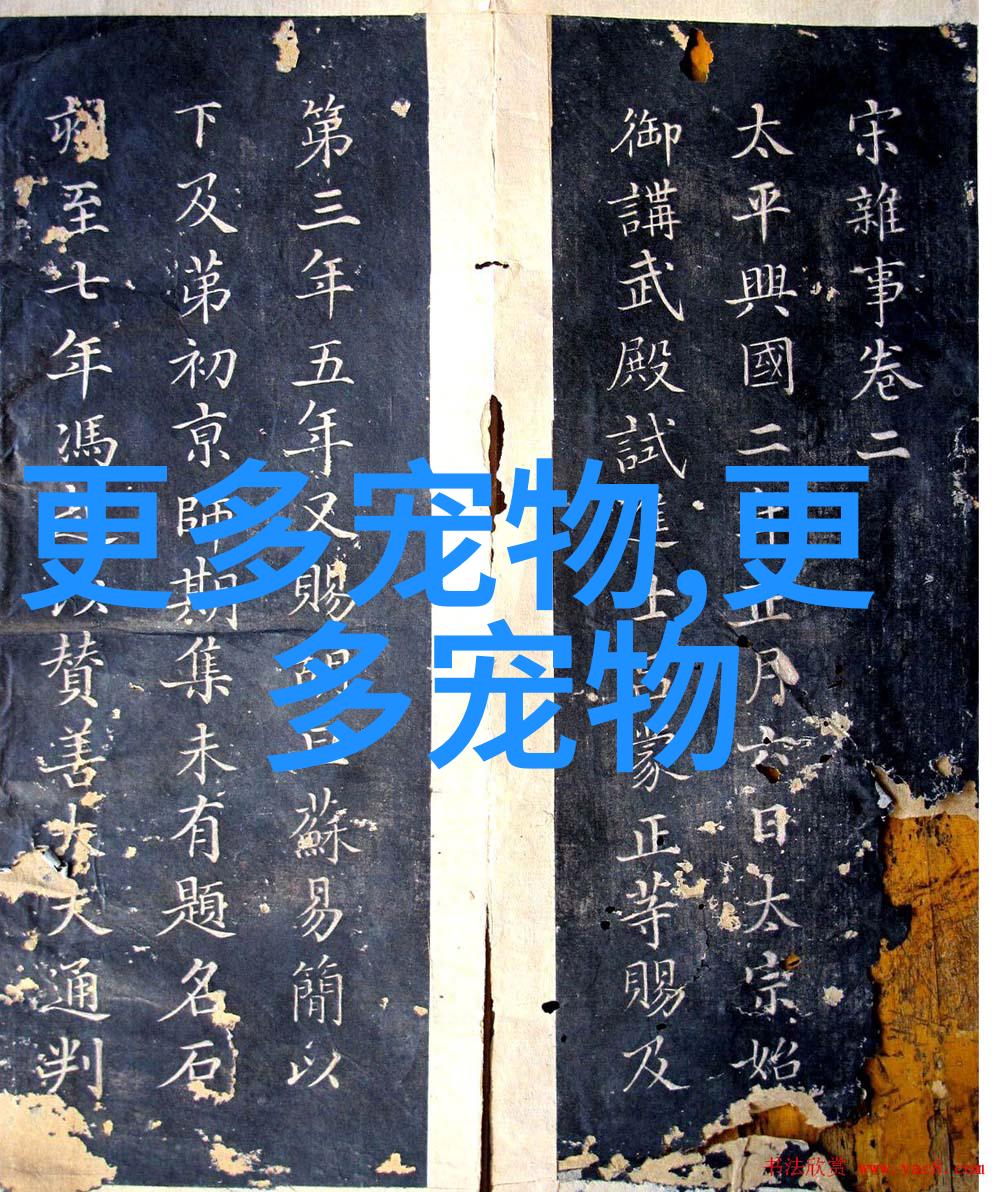 更多宠物,更
多宠物
宋雜事卷二
太平興國二年正月六日太宗始
御講武殿試進士呂蒙正等賜及
第三年五年又賜蘇易簡以
下及苐初亰師期集未有題名石
至七年馮以贊善大夫通判
书法欣赏 www.yac8.com